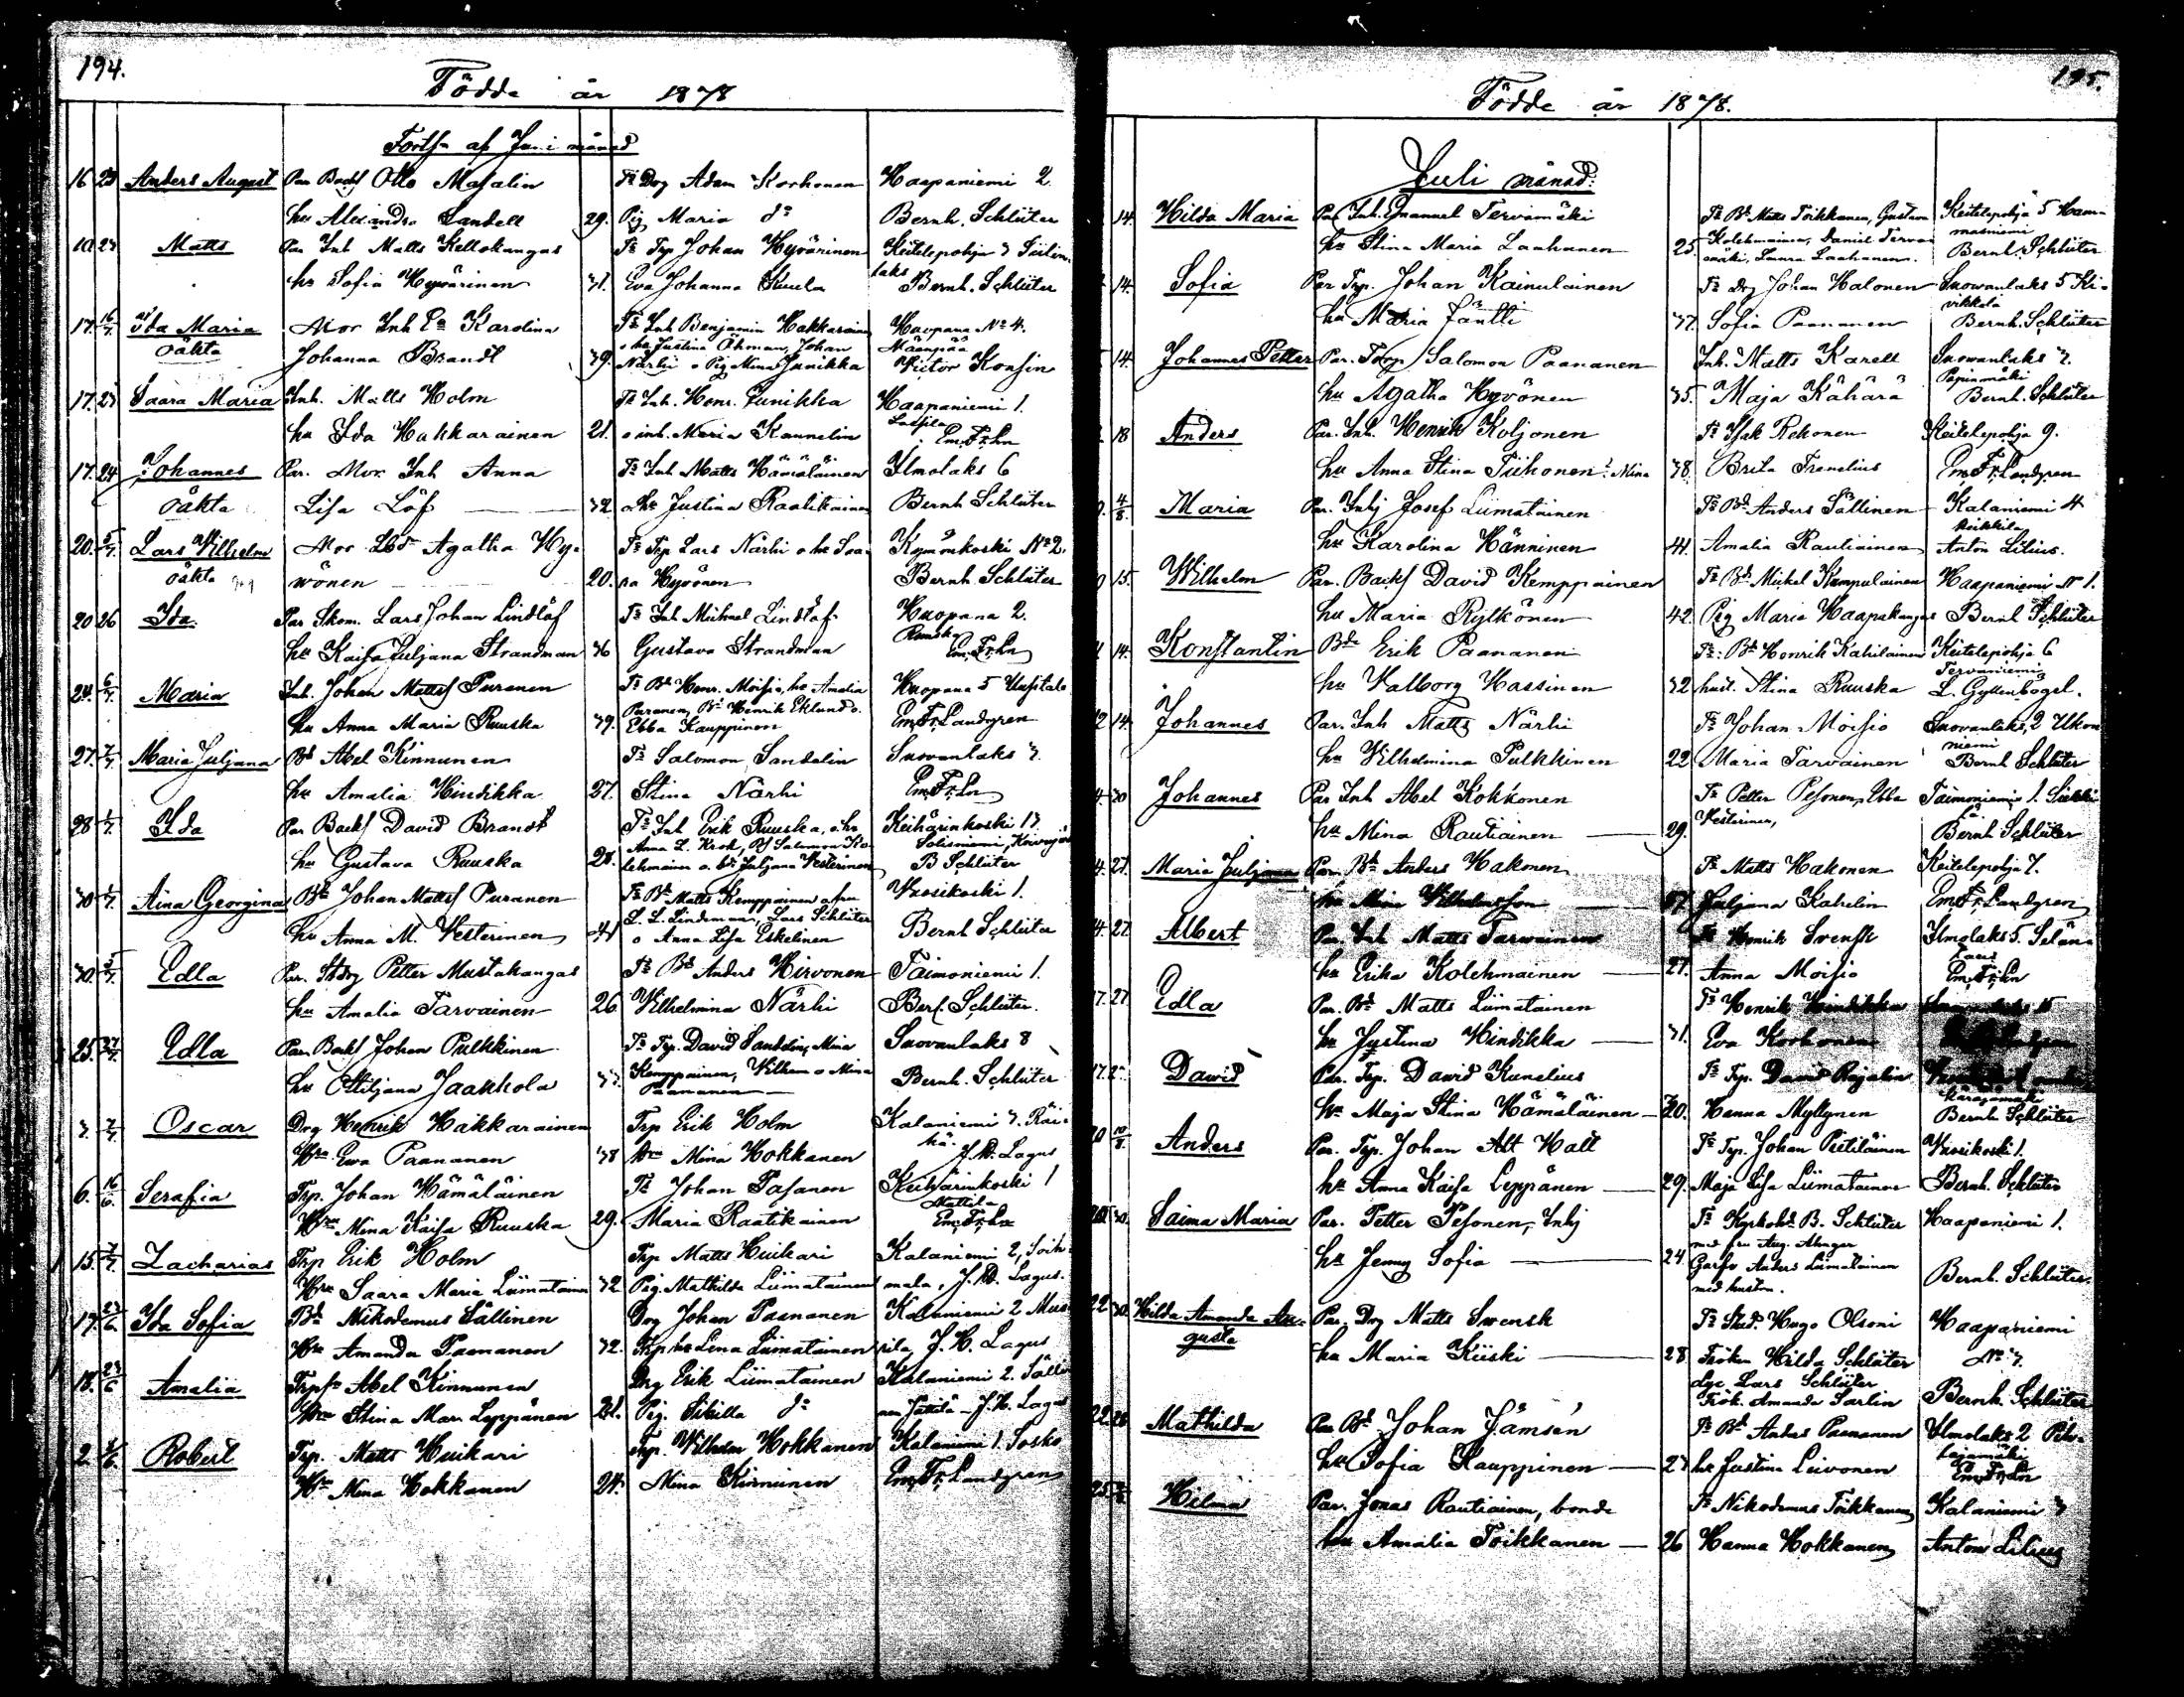 194.
Födde år 1878
Forts. af Juni månad
16 23 Anders August Par Backs Otto Masalin Fr Drg Adam Korhonen Haapaniemi 2.
hu Alexandra Sandell 29. Pig Maria do Bernh. Schlüter
10. 23 Matts Par Inh Matts Kellokangas Fr Trp Johan Hyvärinen Keitelepohja 7
hu Sofia Hyvärinen 31. Eva Johanna Ruuska Bernh. Schlüter
17. 16/7. Ida Maria Mor Inh Ea Karolina Fr Inh Benjamin Hakkarainen Huopana No 4.
oäkta Johanna Brandt 39. o hu Justina Öhman, Johan Närhi o Pig Mina Junikka Victor Konsin
17. 23 Saara Maria Inh. Matts Holm Fr Inh. Henr. Junikka Haapaniemi 1.
hu Ida Hakkarainen 21. o inh. Maria Kannelin Em. Fr. Ln
17. 24 Johannes Par. Mor Inh Anna Fr Inh Matts Hämäläinen Ilmolaks 6
oäkta Lisa Löf 32 o hu Justina Raatikainen Bernh Schlüter
20. 5/7. Lars Wilhelm Mor Agatha Hy- Fr Trp Lars Närhi o hu Saa- Kymönkoski No 2.
oäkta wönen 20. ra Hyvönen Bernh. Schlüter
20 26 Ida Par Skom. Lars Johan Lindlöf Fr Inh Michael Lindlöf Huopana 2.
hu Kaisa Juljana Strandman 36 Gustava Strandman Em. Fr. Ln
24. 6/7. Maria Inh. Johan Matts Puranen Fr Bd Henr. Moisio, hu Amalia Huopana 5
hu Anna Maria Ruuska 39. Puranen, Bd Henrik Eklund o. Ebba Kauppinen Em. Fr. Landgren
27. 7/7. Maria Juljana Bd Abel Kinnunen Fr Salomon Sandelin Suovanlaks 7.
hu Amalia Hindikka 27. Stina Närhi Em. Fr. Ln
28 1/7. Ida Par Backs David Brandt Fr Inh Erik Ruuska, o hu Keihärinkoski 13
hu Gustava Ruuska 28. Anna L. Krok, Bs Salomon Kolehmainen o. hu Juljana Vesterinen B Schlüter
30 1/7. Aina Georgina Bd Johan Matts Puranen Fr Bd Matts Kemppainen o fru Vuosikoski 1.
hu Anna M. Vesterinen 41 L. L. Lindeman, Lars Schlüter o Anna Lisa Eskelinen Bernh Schlüter
30. 5/7. Edla Par. Petter Mustakangas Fr Bd Anders Hirvonen Taimoniemi 1.
hu Amalia Tarvainen 26. Wilhelmina Närhi Ber. Schlüter.
25. 27/7. Edla Par Backs Johan Pulkkinen Fr Trp. David Sandelin, Mina Suovanlaks 8
hu Ottiljana Jaakkola 33. Kemppainen, Wilhem o Mina Paananen Bernh. Schlüter
3. 7/7. Oscar Drg Henrik Hakkarainen Trp Erik Holm Kalaniemi 7. Räihä.
Hru Ewa Paananen 38 Hru Mina Hokkanen J. H. Lagus
6. 16/6. Serafia Trp. Johan Hämäläinen Fr Johan Pasanen Keihärinkoski 1
Hru Mina Kaisa Ruuska 29. Maria Raatikainen Em. Fr. Ln
15. 7/7. Zacharias Trp Erik Holm Trp Matts Huikari Kalaniemi 2,
Hru Saara Maria Liimatainen 32 Pig. Mathilda Liimatainen J. H. Lagus.
17. 23/6. Ida Sofia Bd Nikodemus Sällinen Drg Johan Paananen Kalaniemi 2
Hru Amanda Paananen 32. Trp hu Lena Liimatainen J. H. Lagus
18. 23/6 Amalia Abel Kinnunen Drg Erik Liimatainen Kalaniemi 2.
Hru Stina Mar. Leppänen 21. Pig. Sibilla do J. H. Lagus
2. Robert Trp. Matts Huikari Trp. Wilhelm Hokkanen Kalaniemi 1.
Hru Mina Hokkanen 24. Mina Kinnunen Em. Fr. Landgren
195.
Födde år 1878.
Juli månad:
14. Hilda Maria Par Inh. Emanuel Tervamäki Fr Bd Matts Toikkanen, Gustava Keitelepohja 5
hu Stina Maria Laahanen 25. Kolehmainen, Daniel Tervamäki, Laura Laahanen. Bernh. Schlüter
14. Sofia Par Trp. Johan Kainulainen Fr Drg Johan Halonen Suovanlaks 5 Kivikkela
hu Maria Jäntti 37. Sofia Paananen Bernh. Schlüter
14. Johannes Petter Par. Torp Salomon Paananen Inh. Matts Karell Suowanlaks 7.
hu Agatha Hyvönen 35. Maja Kähärä Bernh. Schlüter
18 Anders Par. Inh. Henrik Koljonen Fr Isak Rekonen Keitelepohja 9.
hu Anna Stina Tiihonen 38. Brita Frenelius Em. Fr. Landgren
4/8. Maria Par. Inhj Josef Liimatainen Fr Bd Anders Sällinen Kalaniemi 4
hu Karolina Hänninen 41. Amalia Rautiainen Anton Lilius.
15. Wilhelm Par. Backs David Kemppainen Fr Bd. Mickel Kumpulainen Haapaniemi No 1.
hu Maria Rytkönen 42. Pig Maria Haapakangas Bernh Schlüter
14. Konstantin Bde Erik Paananen Fr: Bd Henrik Kahilainen Keitelepohja 6 Tervaniemi
hu Walborg Hassinen 32 hust. Stina Ruuska L. Gyllenbögel.
12 14. Johannes Par. Inh Matts Närhi Fr Johan Moisio Suovanlaks, 2 Ukonniemi
hu Vilhelmina Pulkkinen 22 Maria Tarvainen Bernh Schlüter
30 Johannes Par Inh Abel Kokkonen Fr Petter Pesonen, Ebba Taimoniemi 1.
hu Mina Rautiainen 29. Vesterinen, Bernh Schlüter
27. Maria Juljana Par. Bd Anders Hakonen Fr Matts Hakonen Keitelepohja 7.
hu Mina Wilhelmsson Juljana Kahelin Em. Fr. Landgren
27. Albert Par. Inh Matts Tarwainen Fr Henrik Svensk Ilmolaks 5.
hu Erika Kolehmainen 27. Anna Moisio Em. Fr. Ln
27 Edla Par. Bd Matts Liimatainen Fr Henrik Hindikka
hu Justina Hindikka 31. Eva Korhonen
David Par. Trp. David Kunelius Fr Trp. David Rajalin
hu Maja Stina Hämäläinen 30. Hanna Myllynen Bernh Schlüter
Anders Par. Trp. Johan Alt Halt Fr Trp. Johan Pietiläinen Vuosikoski 1.
hu Anna Kaisa Leppänen 29. Maja Lisa Liimatainen Bernh. Schlüter
30. Saima Maria Par. Petter Pesonen, Inhj Fr Kyrkohd B. Schlüter Haapaniemi 1.
hu Jenny Sofia 24. Anders Liimatainen med hustru. Bernh. Schlüter.
22 30. Hilda Amanda Augusta Par. Drg Matts Swensk Fr Stud. Hugo Olsoni Haapaniemi
hu Maria Kiiski 28 Fröken Hilda Schlüter No 7.
Lars Schlüter
Frök. Amanda Sarlin Bernh. Schlüter
22. 28 Mathilda Par Bd Johan Jämsén Fr Bd Anders Paananen Ilmolaks 2
hu Sofia Kauppinen 27 hu Justina Leivonen Em. Fr. Ln
25. Hilma Par. Jonas Rautiainen, bonde Fr Nikodemus Toikkanen Kalaniemi 7
hu Amalia Toikkanen 26 Hanna Hokkanen Anton Lilius